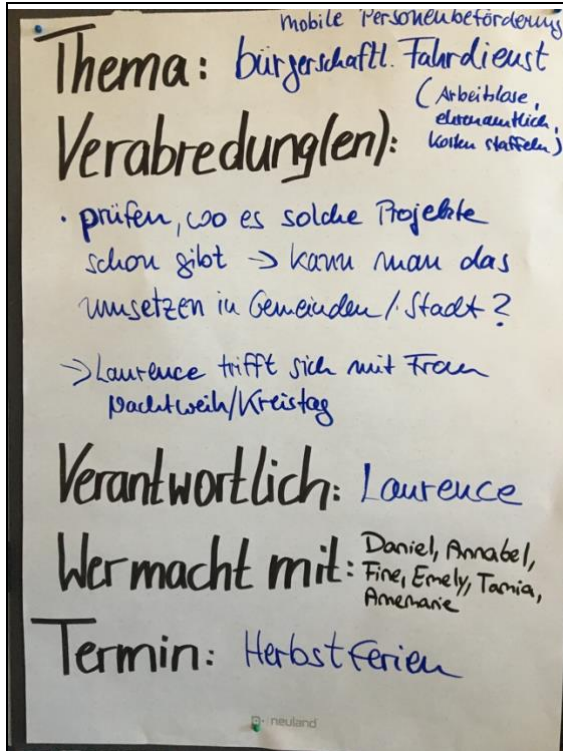 mobile Personenbeförderung
Thema: bürgerschaftl. Fahrdienst
(Arbeitslose,
ehrenamtlich,
Kosten staffeln)
Verabredung(en):
• prüfen, wo es solche Projekte
schon gibt → kann man das
umsetzen in Gemeinden/Stadt?
→ Laurence trifft sich mit Frau
Nachtweih/Kreistag
Verantwortlich: Laurence
Wer macht mit: Daniel, Annabel,
Fine, Emely, Tamia,
Annemarie
Termin: Herbstferien
neuland